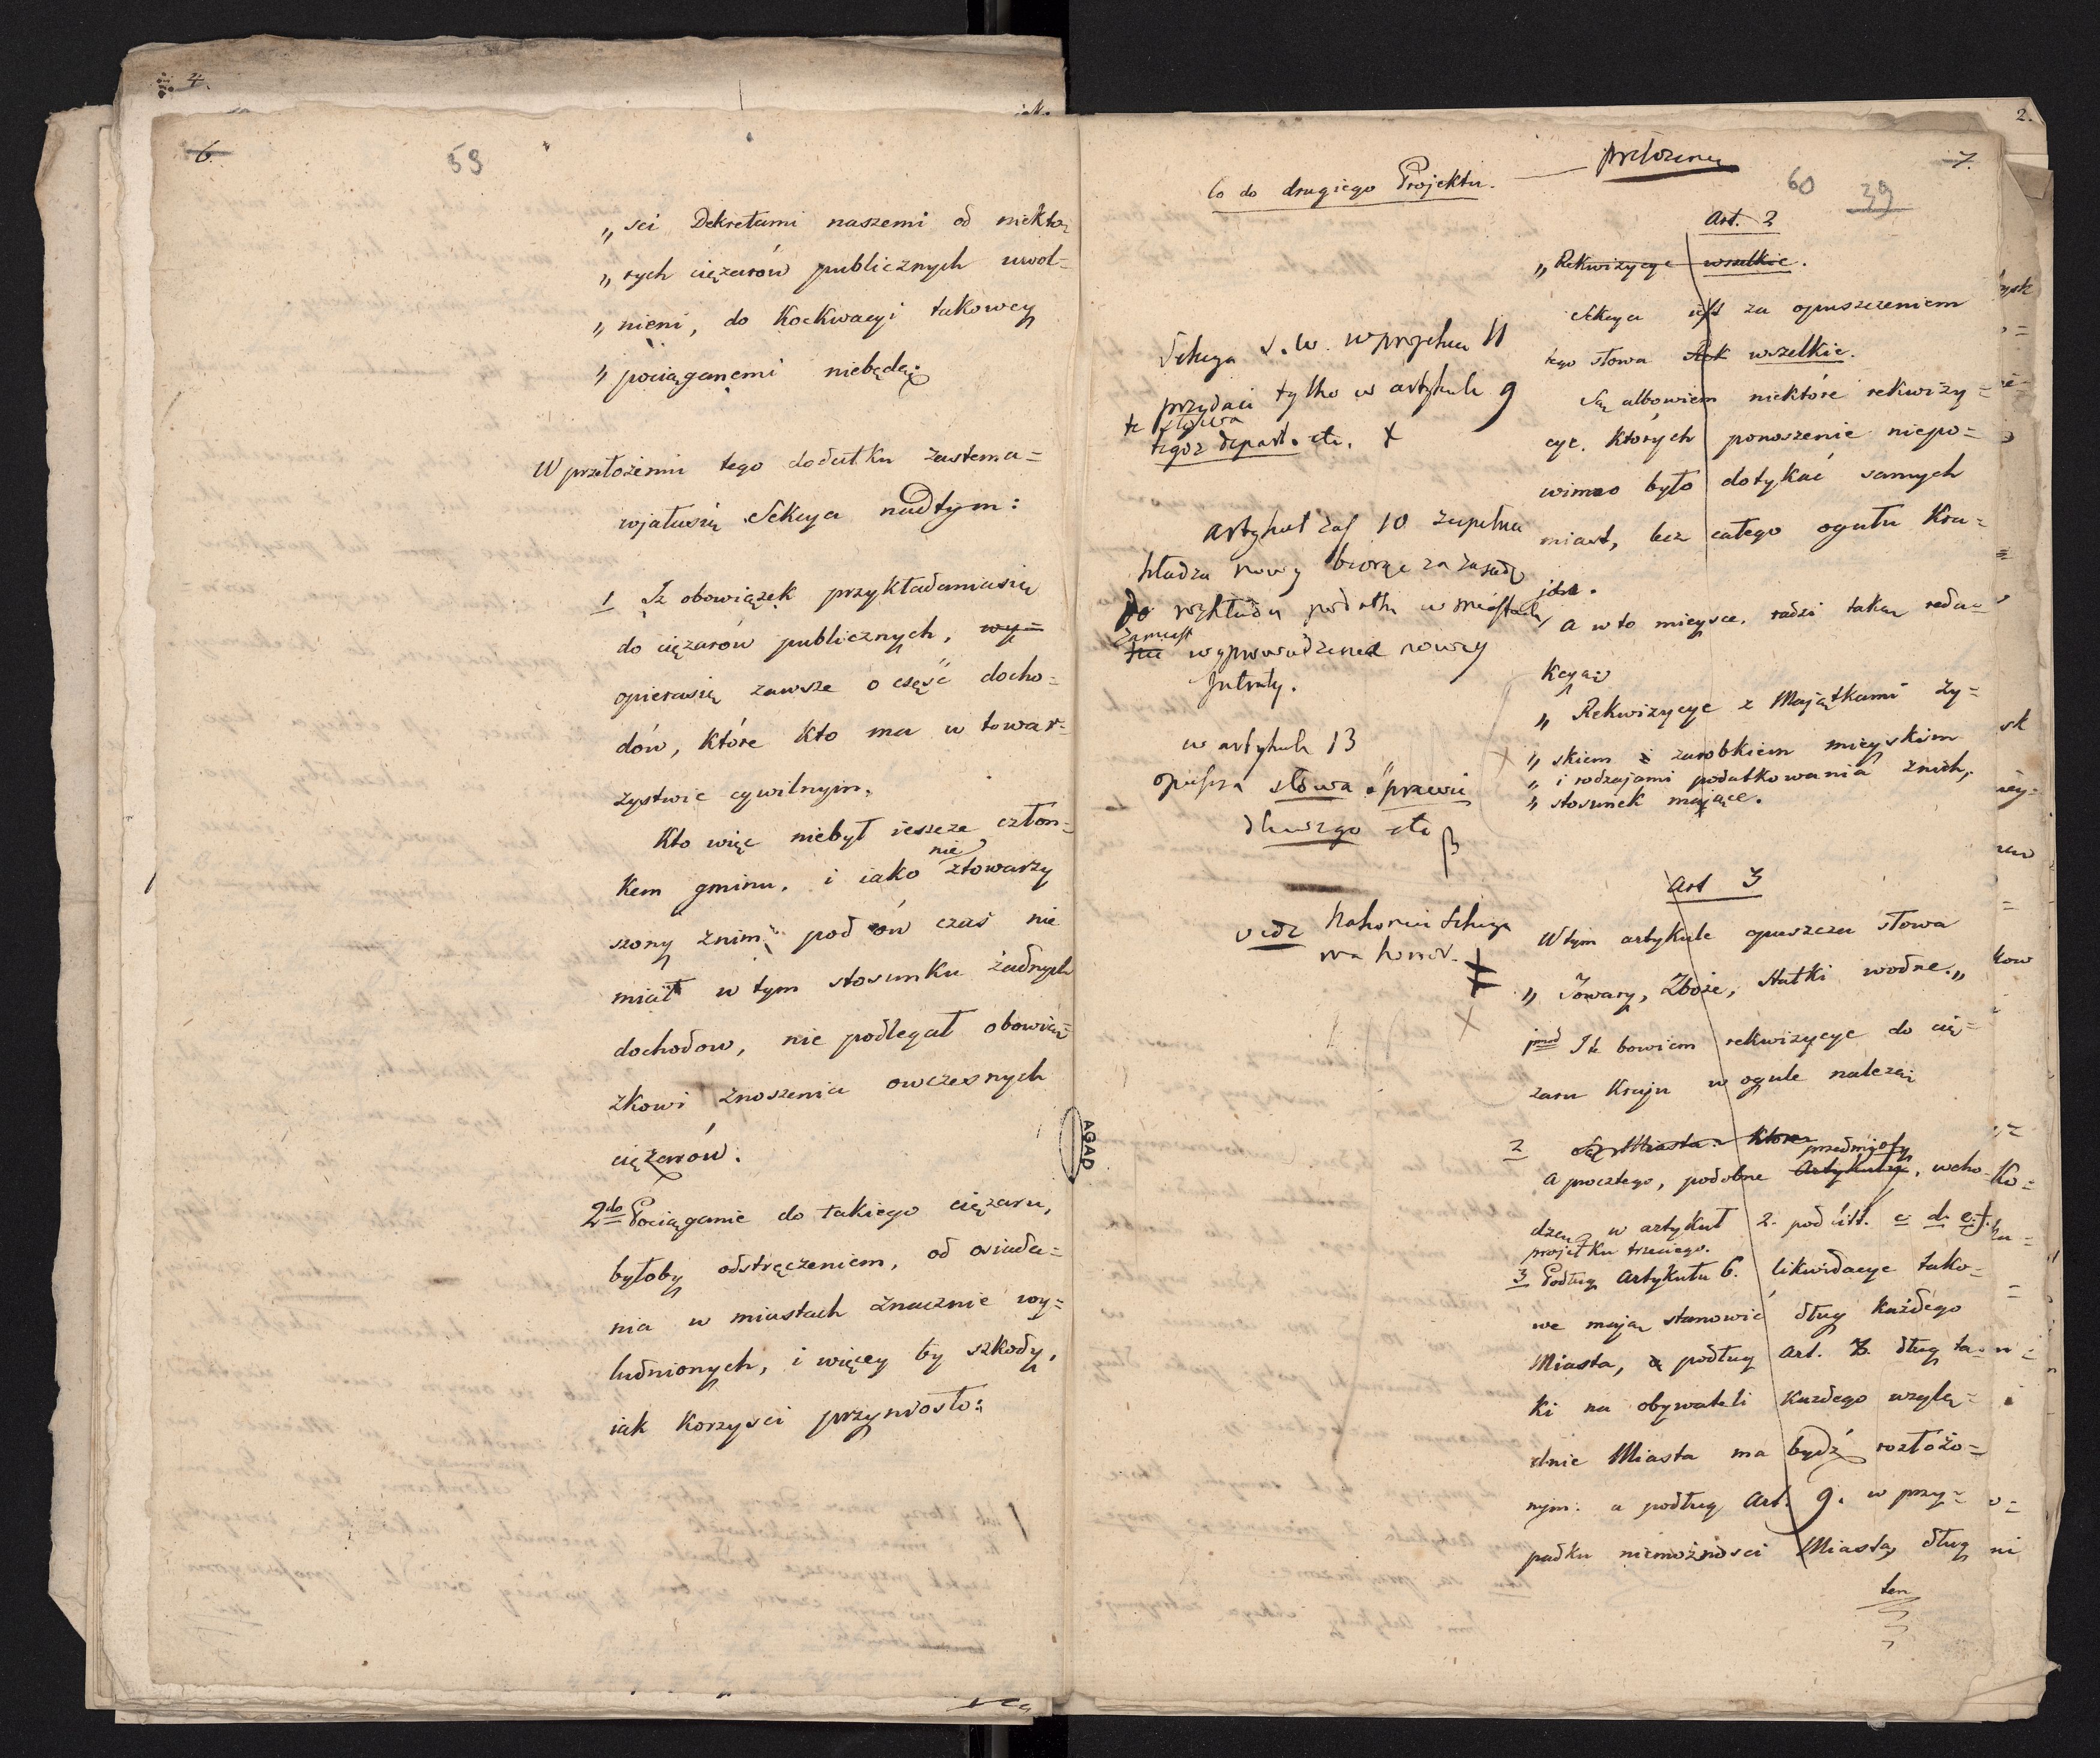 4.
6.
59
„ sci Dekretami naszemi od niektó⸗
„ rych ciężarów publicznych uwol⸗
„ nieni, do Koekwacyi takowey
„ pociąganemi niebędą.
W przełożeniu tego dodatku zastana⸗
wjałasię Sekcya nadtym:
1 Iż obowiązek przykładaniasię
do ciężarów publicznych, wy⸗
opierasię zawsze o część docho⸗
dów, które kto ma w towar⸗
zystwie cywilnym.
Kto więc niebył ieszcze człon⸗
nie
kem gminu, i iako ztowarzy
szony znim pod ów czas nie
miał w tym stosunku żadnych
dochodow, nie podlegał obowią⸗
zkowi znoszenia owczesnych
ciężarów.
2do Pociąganie do takiego ciężaru,
byłoby odstręczeniem, od osiada⸗
nia w miastach znacznie wy⸗
ludnionych, i więcey by szkody,
iak korzysci przyniosło.
AGAD
2.
7.
60 39
Co do drugiego Projektu.
przełożenia
Sekcya
przydaie tylko w artykule 9
te słowa
tegoż depart. etc. X
artykuł zaś 10 zupełnie
kładzie nowy biorąc za zasadę
do rozkładu podatku w miastach
zamiast
wyprowadzenia nowey
intraty.
w artykule 13
opuszcza słowa
dłuzego etc
vide
Art. 2
„ Rekwizycye wszelkie.
Sekcya iest za opuszczeniem
tego słowa wszelkie.
Są albowiem niektóre rekwizy⸗
cye, których ponoszenie niepo⸗
winno było dotykać samych
miast, lecz całego ogułu Kra⸗
ju.
A w to mieysce, radzi taką reda⸗
kcyą
„ Rekwizycye z Maiątkami Zy⸗
„ skiem i zarobkiem mieyskim
„ i rodzajami podatkowania znich,
„ stosunek mające.
Art 3
W tym artykule opuszcza słowa
„ Towary, Zboże, Statki wodne. „
jmo Ite bowiem rekwizycye do cię⸗
żaru Kraju w ogule należą
2 Są Miasta Które
przedmioty
A procztego, podobne Artykuły, wcho⸗
dzą w artykuł 2. pod litt. c. d. e. f.
projektu trzeciego.
3 Podług Artykułu 6. likwidacye tako⸗
we mają stanowić dług każdego
Miasta, a podług Art. 7. dług ta⸗
ki na obywateli każdego wzglę⸗
dnie Miasta ma bydź rozłożo⸗
nym: a podług Art. 9. w przy⸗
padku niemożności Miasta, dług
ten